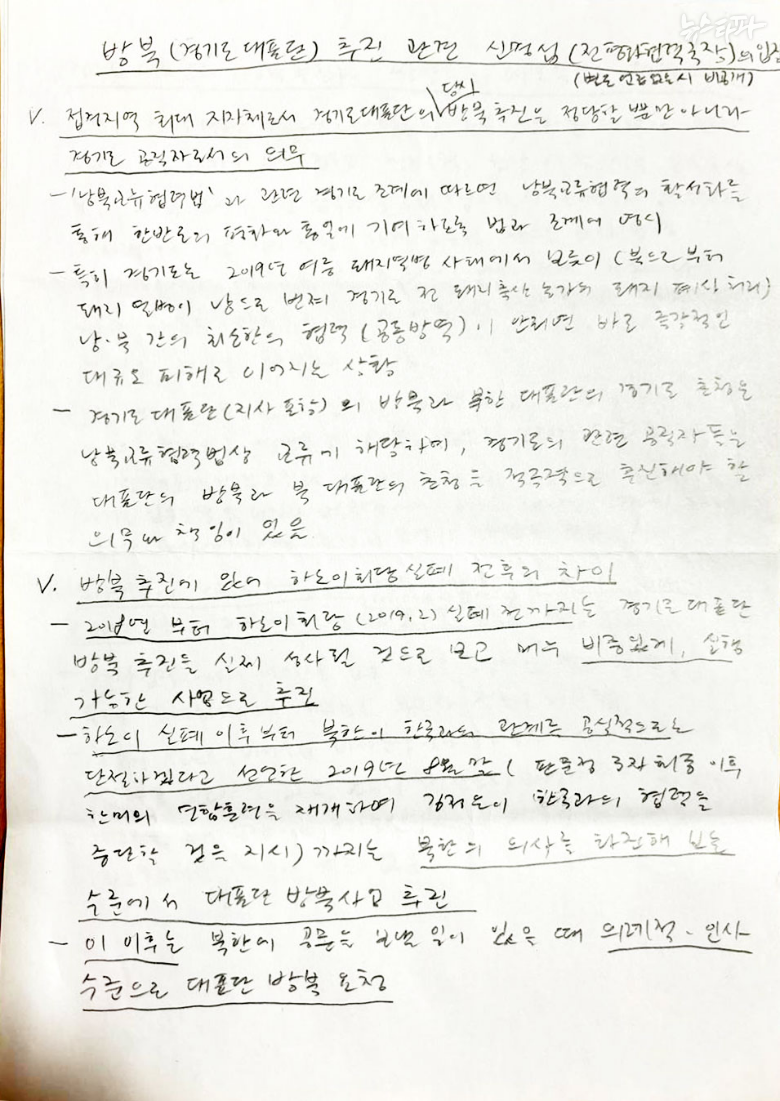 뉴스타파
방북 (경기도 대표단) 추진 관련 신명섭 (전 평화협력국장)의 입장
(별도 언급 없을시 비공개)
V. 접경지역 최대 지자체로서 경기도대표단의 당시 방북추진은 정당할 뿐만 아니라
경기도 공직자로서의 의무
- '남북교류협력법'과 관련 경기도 조례에 따르면 남북교류협력의 활성화를
통해 한반도의 평화와 통일에 기여하도록 법과 조례에 명시
- 특히 경기도는 2019년 여름 돼지열병 사태에서 보듯이 (북으로부터
돼지열병이 남으로 번져 경기도 전 돼지축산 농가의 돼지 폐사처리)
남·북 간의 최소한의 협력 (공동방역)이 안되면 바로 즉각적인
대규모 피해로 이어지는 상황
- 경기도 대표단(지사 포함)의 방북과 북한 대표단의 경기도 초청은
남북교류협력법상 교류에 해당하며, 경기도의 관련 공직자들은
대표단의 방북과 북 대표단의 초청을 적극적으로 추진해야 할
의무와 책임이 있음
V. 방북 추진에 있어 하노이회담 실패 전후의 차이
- 2018년 부터 하노이회담 (2019.2) 실패 전까지는 경기도 대표단
방북 추진을 실제 성사될 것으로 보고 매우 비중있게, 실행
가능한 사업으로 추진
- 하노이 실패 이후부터 북한이 한국과의 관계를 공식적으로
단절하겠다고 선언한 2019년 8월 말 (판문점 3자 회동 이후
한미의 연합훈련을 재개하여 김정은이 한국과의 협력을
중단할 것을 지시) 까지는 북한의 의사를 타진해 보는
수준에서 대표단 방북사업 추진
- 이 이후는 북한에 공문을 보낼 일이 있을 때 의례적·인사
수준으로 대표단 방북 요청